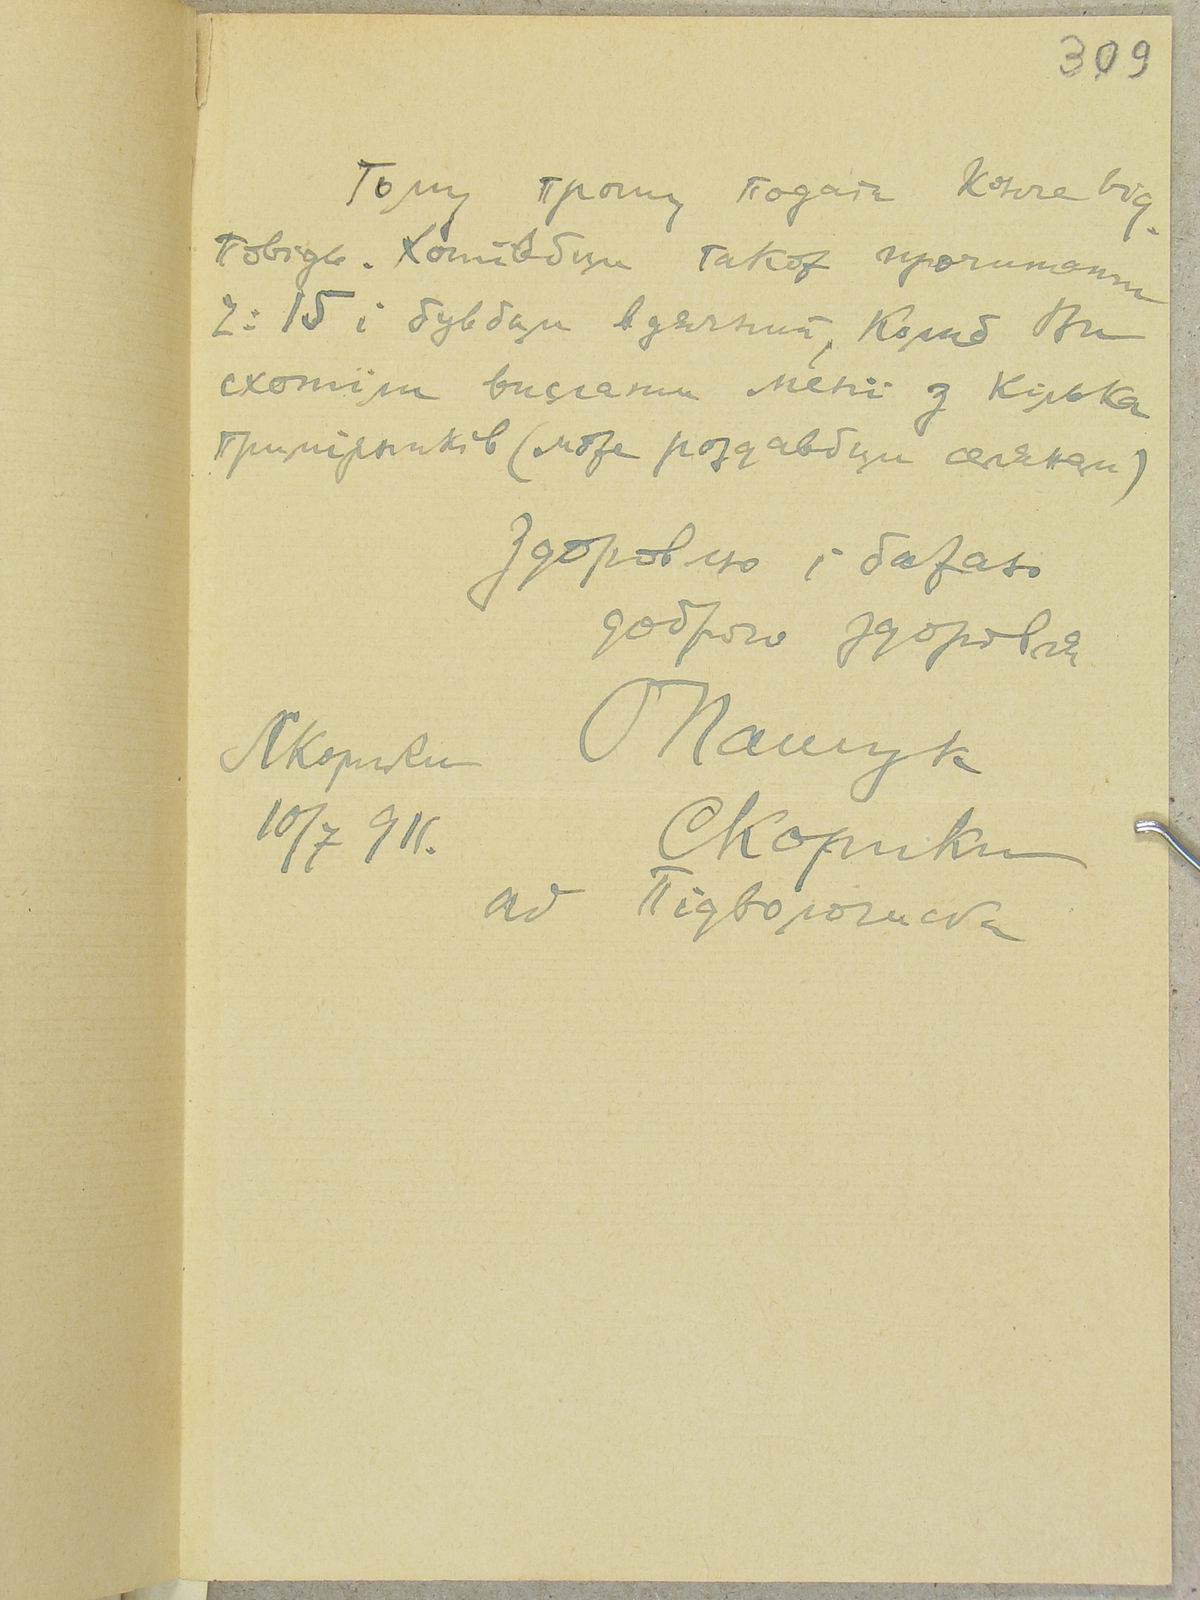 309
Тому прошу подати конче від-
повідь. Хотівбим також прочитати
Ч: 15 і бувбим вдячний, колиб Ви
схотїли вислати менї з кілька
примірників (може роздавбим селянам)
Здоровлю і бажаю
доброго здоровля
О Пашук
Скорики
10/7 911.
Скорики
ad Підволочиска